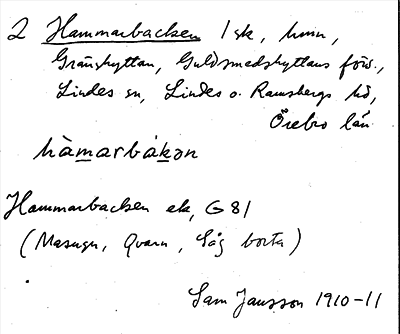 2 Hammarbacken 1 sk, hmn,
Gränshyttan, Guldsmedshyttans förs.,
Lindes sn, Lindes o. Ramsbergs hd,
Örebro län
hàmarbákən
Hammarbacken ek, G 81
(Masugn, Qvarn, Såg borta)
Sam Jansson 1910-11